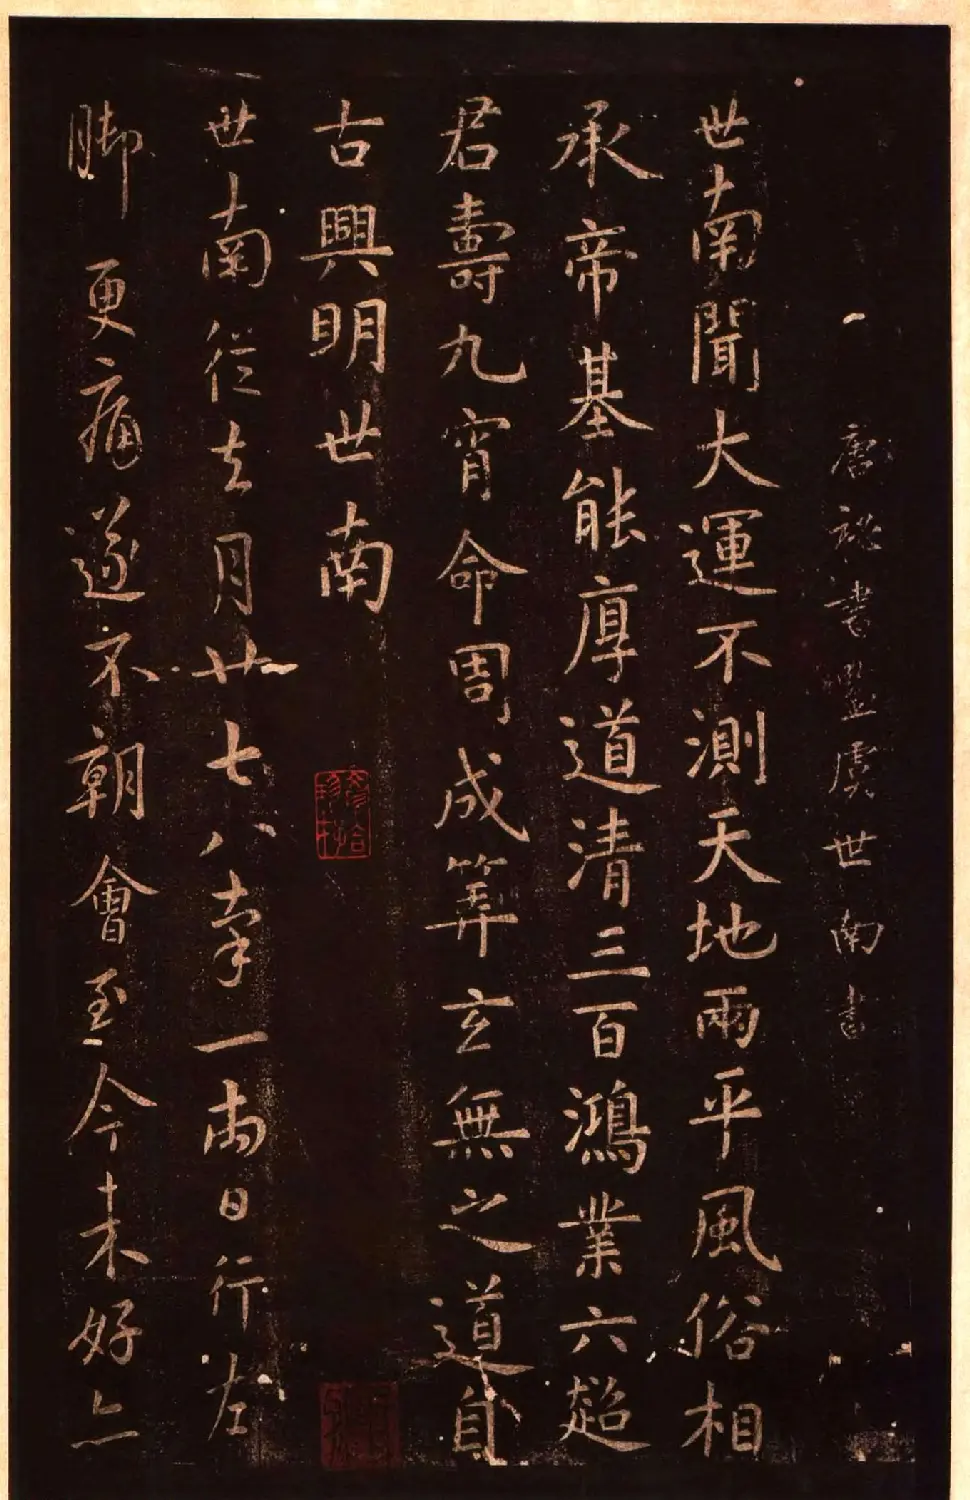 唐秘書監虞世南書
世南聞大運不測天地兩平風俗相
承帝基能厚道清三百鴻業六超
君壽九霄命周成筭玄無之道自
古興明世南
世南從去月廿七八率一兩日行左
脚更痛遂不朝會至今未好亦